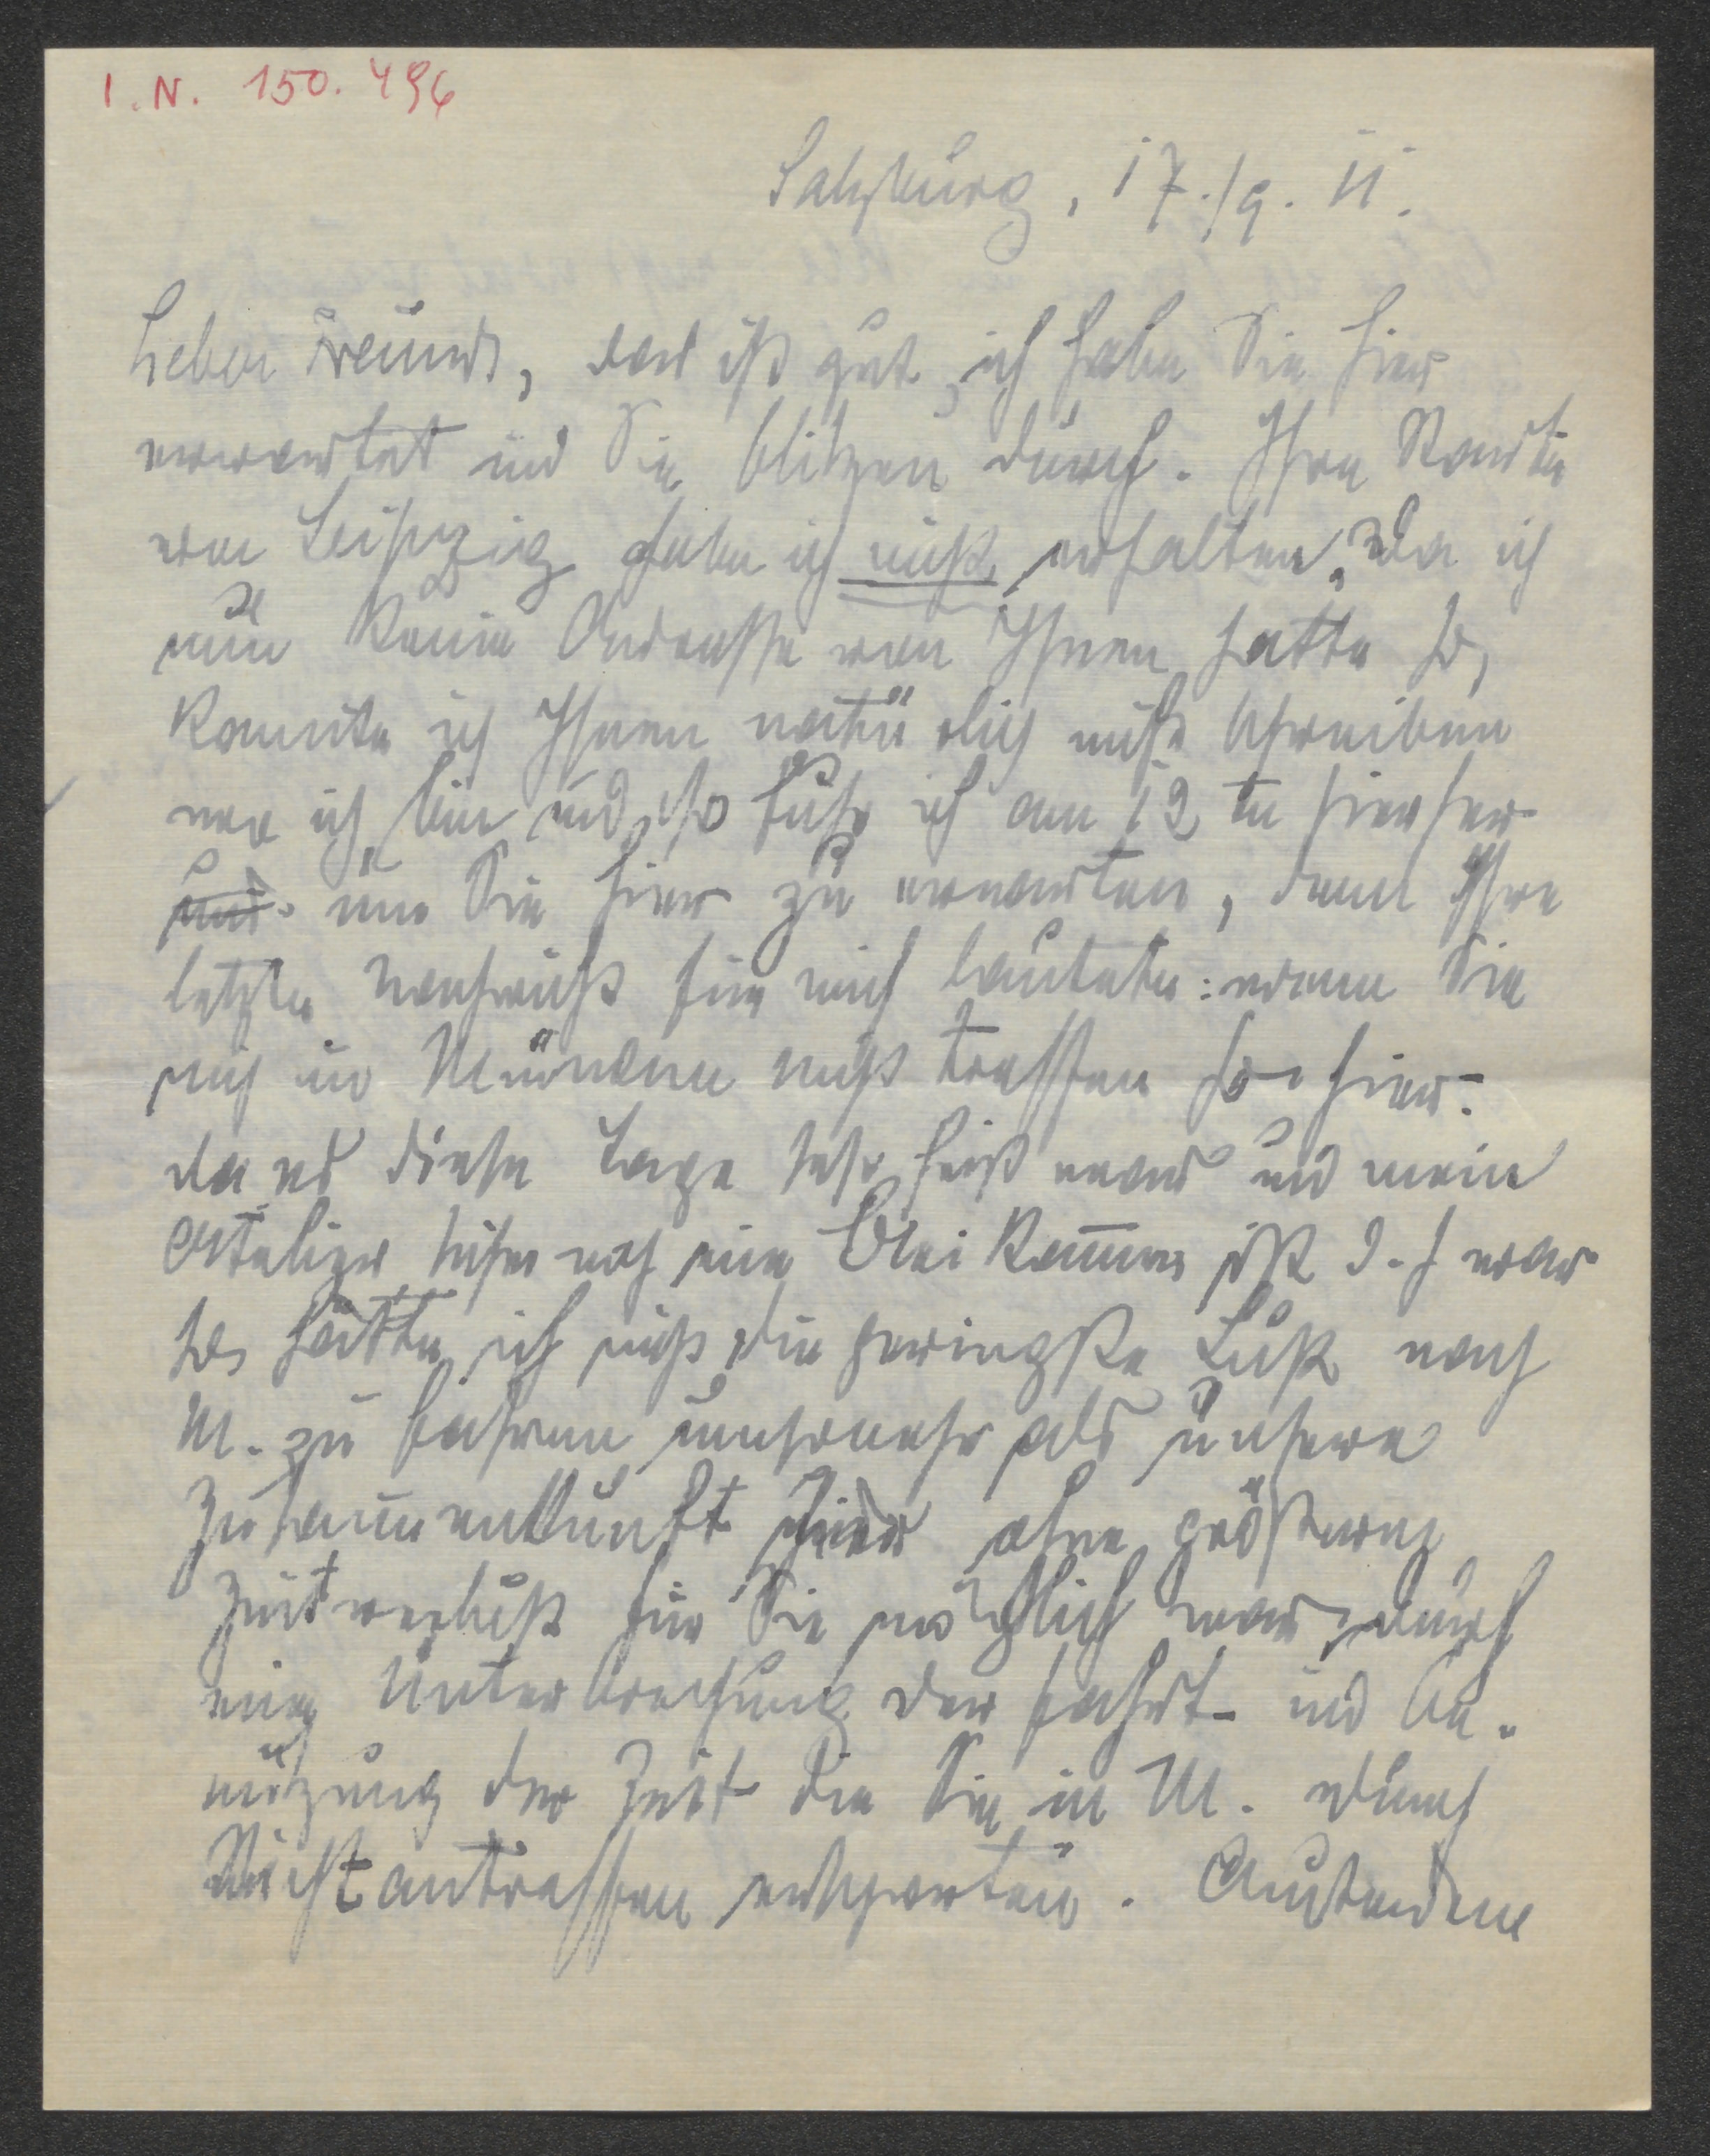 I.N. 150.496
Salzburg, 17./9. 11.
Lieber Freund, das ist gut, ich habe Sie hier
erwartet und Sie blitzen durch. Ihre Karte
von Leipzig habe ich nicht erhalten, da ich
nun keine Adresse von Ihnen hatte so,
konnte ich Ihnen natürlich nicht schreiben
wo ich bin und so fuhr ich am 12 ten hierher
und um Sie hier zu erwarten, denn Ihre
letzte Nachricht für mich lautete: wenn Sie
mich in München nicht treffen so hier.
da es diese Tage sehr heiß war und mein
Atelier sicher noch eine Bleikammer ist d. h war
so hätte ich nicht die geringste Lust nach
M. zu fahren umsomehr als unsere
Zusammenkunft hier ohne größeren
Zeitverlust für Sie möglich war, durch
eine Unterbrechung der Fahrt und Be-
nützung der Zeit die Sie in M. durch
Nichtantreffen ersparten. Außerdem